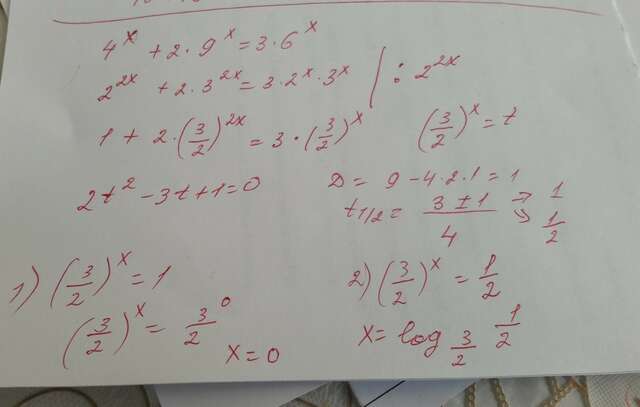 4^x + 2 · 9^x = 3 · 6^x
2^{2x} + 2 · 3^{2x} = 3 · 2^x · 3^x | : 2^{2x}
1 + 2 · (3/2)^{2x} = 3 · (3/2)^x (3/2)^x = t
2t^2 - 3t + 1 = 0 D = 9 - 4 · 2 · 1 = 1
t_{1/2} = (3 ± 1)/4 → 1 → 1/2
1) (3/2)^x = 1 2) (3/2)^x = 1/2
(3/2)^x = 3/2^0 x = log_{3/2} 1/2
x = 0